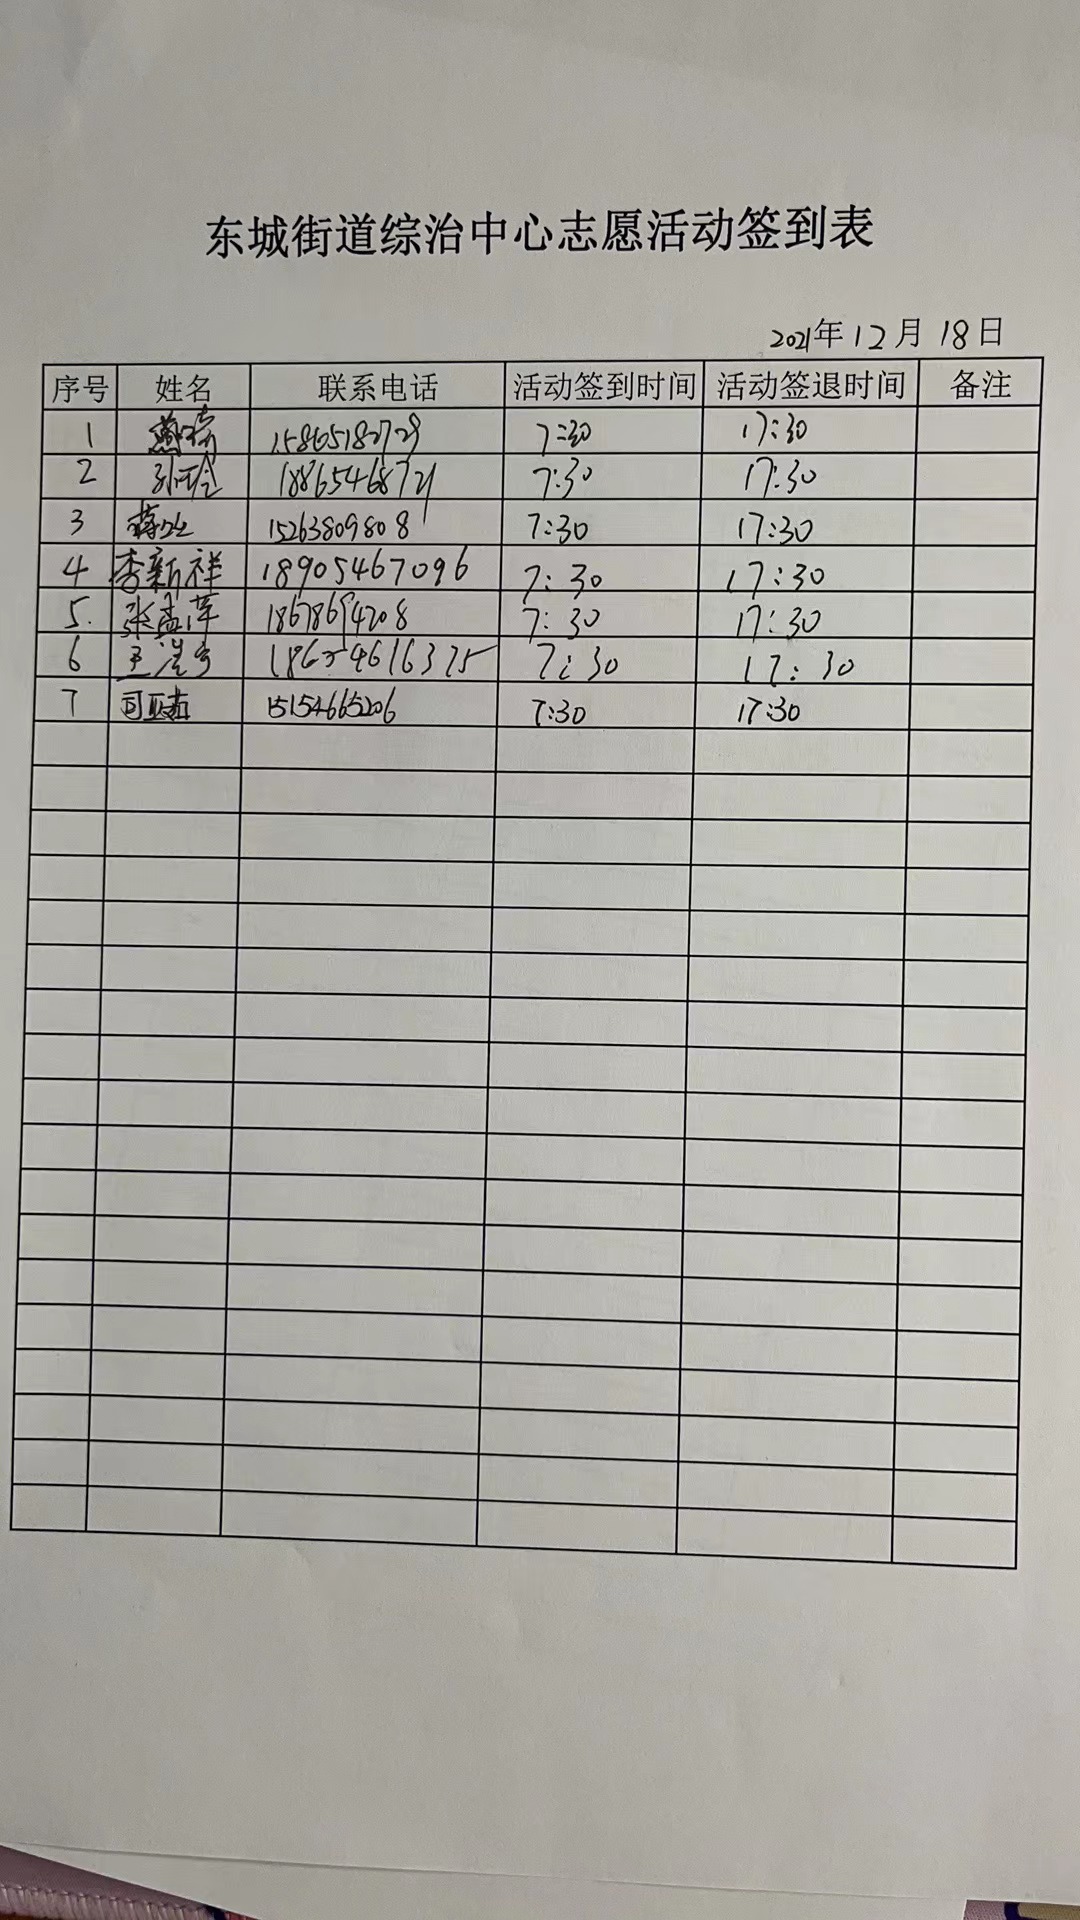 东城街道综治中心志愿活动签到表
2021年12月18日
序号 姓名 联系电话 活动签到时间 活动签退时间 备注
1 15865182729 7:30 17:30
2 孙玲 18865468721 7:30 17:30
3 15263809808 7:30 17:30
4 李新祥 18905467096 7:30 17:30
5. 张孟萍 18678694208 7:30 17:30
6 18654616375 7:30 17:30
7 司亚茹 15154665206 7:30 17:30